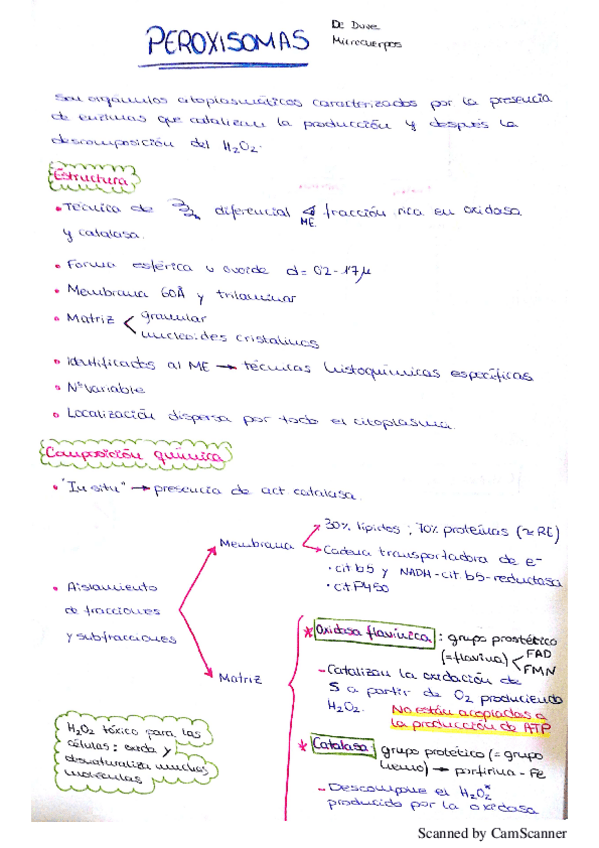 PEROXISOMAS
De Duve
Microcuerpos
Son orgánulos citoplasmáticos caracterizados por la presencia
de enzimas que catalizan la producción y después la
descomposición del H₂O₂.
Estructura
• Técnica de diferencial ME fracción rica en oxidasa
y catalasa.
• Forma esférica u ovoide d= 0.2-1.7μ
• Membrana 60Å y trilaminar
• Matriz < granular
nucleoides cristalinos
• identificados al ME → técnicas histoquímicas específicas
• Nº variable
• Localización dispersa por todo el citoplasma.
Composición química
• "In situ" → presencia de act catalasa.
• Aislamiento
de fracciones
y subfracciones
Membrana
30% lípidos ; 70% proteínas (≃ RE)
Cadena transportadora de e⁻
• cit b5 y NADH-cit b5-reductasa
• cit P450
Matriz
* Oxidasa flavínica : grupo prostético
(=flavina) < FAD
FMN
- Catalizan la oxidación de
S a partir de O₂ produciendo
H₂O₂. No están acopladas a
la producción de ATP
* Catalasa: grupo protético (= grupo
hemo) → porfirina - Fe
- Descompone el H₂O₂*
producido por la oxidasa
H₂O₂ tóxico para las
células: oxida y
desnaturaliza muchas
moléculas
Scanned by CamScanner